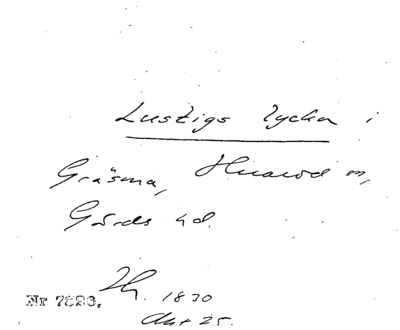 Lustigs lycka i
Gräsma, Huarod m,
Gärds hd.
Nr 7823. Th. 1830
Akt 25.